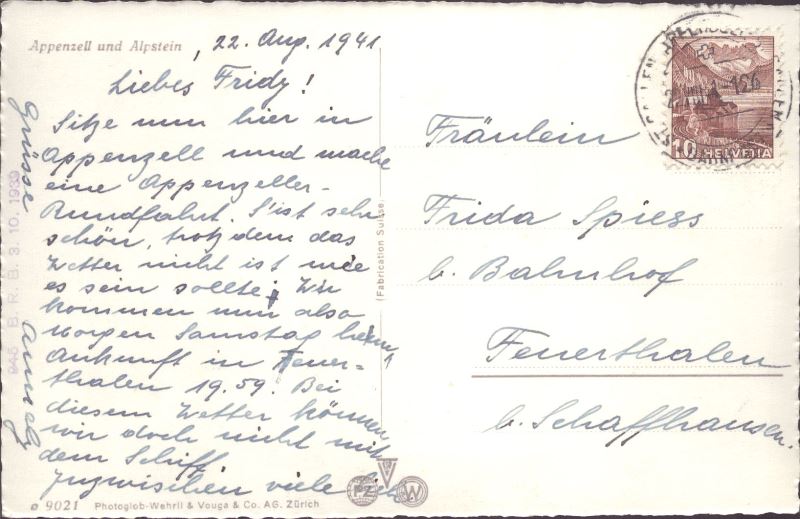 Appenzell und Alpstein
, 22. Aug. 1941
Liebes Fridy!
Sitze nun hier in
Appenzell und mache
eine Appenzeller-
Rundfahrt. S'ist sehr
schön, trotzdem das
Wetter nicht ist wie
es sein sollte. Wir
kommen nun also
morgen Samstag heim,
Ankunft in Feuer-
thalen 19.59. Bei
diesem Wetter können
wir doch nicht mit
dem Schiff.
Inzwischen viele liebe
Grüsse
945 B. R. B. 3. 10. 1939
(Fabrication Suisse)
Fräulein
Frida Spiess
b. Bahnhof
Feuerthalen
b. Schaffhausen.
10 HELVETIA
ST. GALLEN
126
PZ
W
9021 Photoglob-Wehrli & Vouga & Co. AG. Zürich